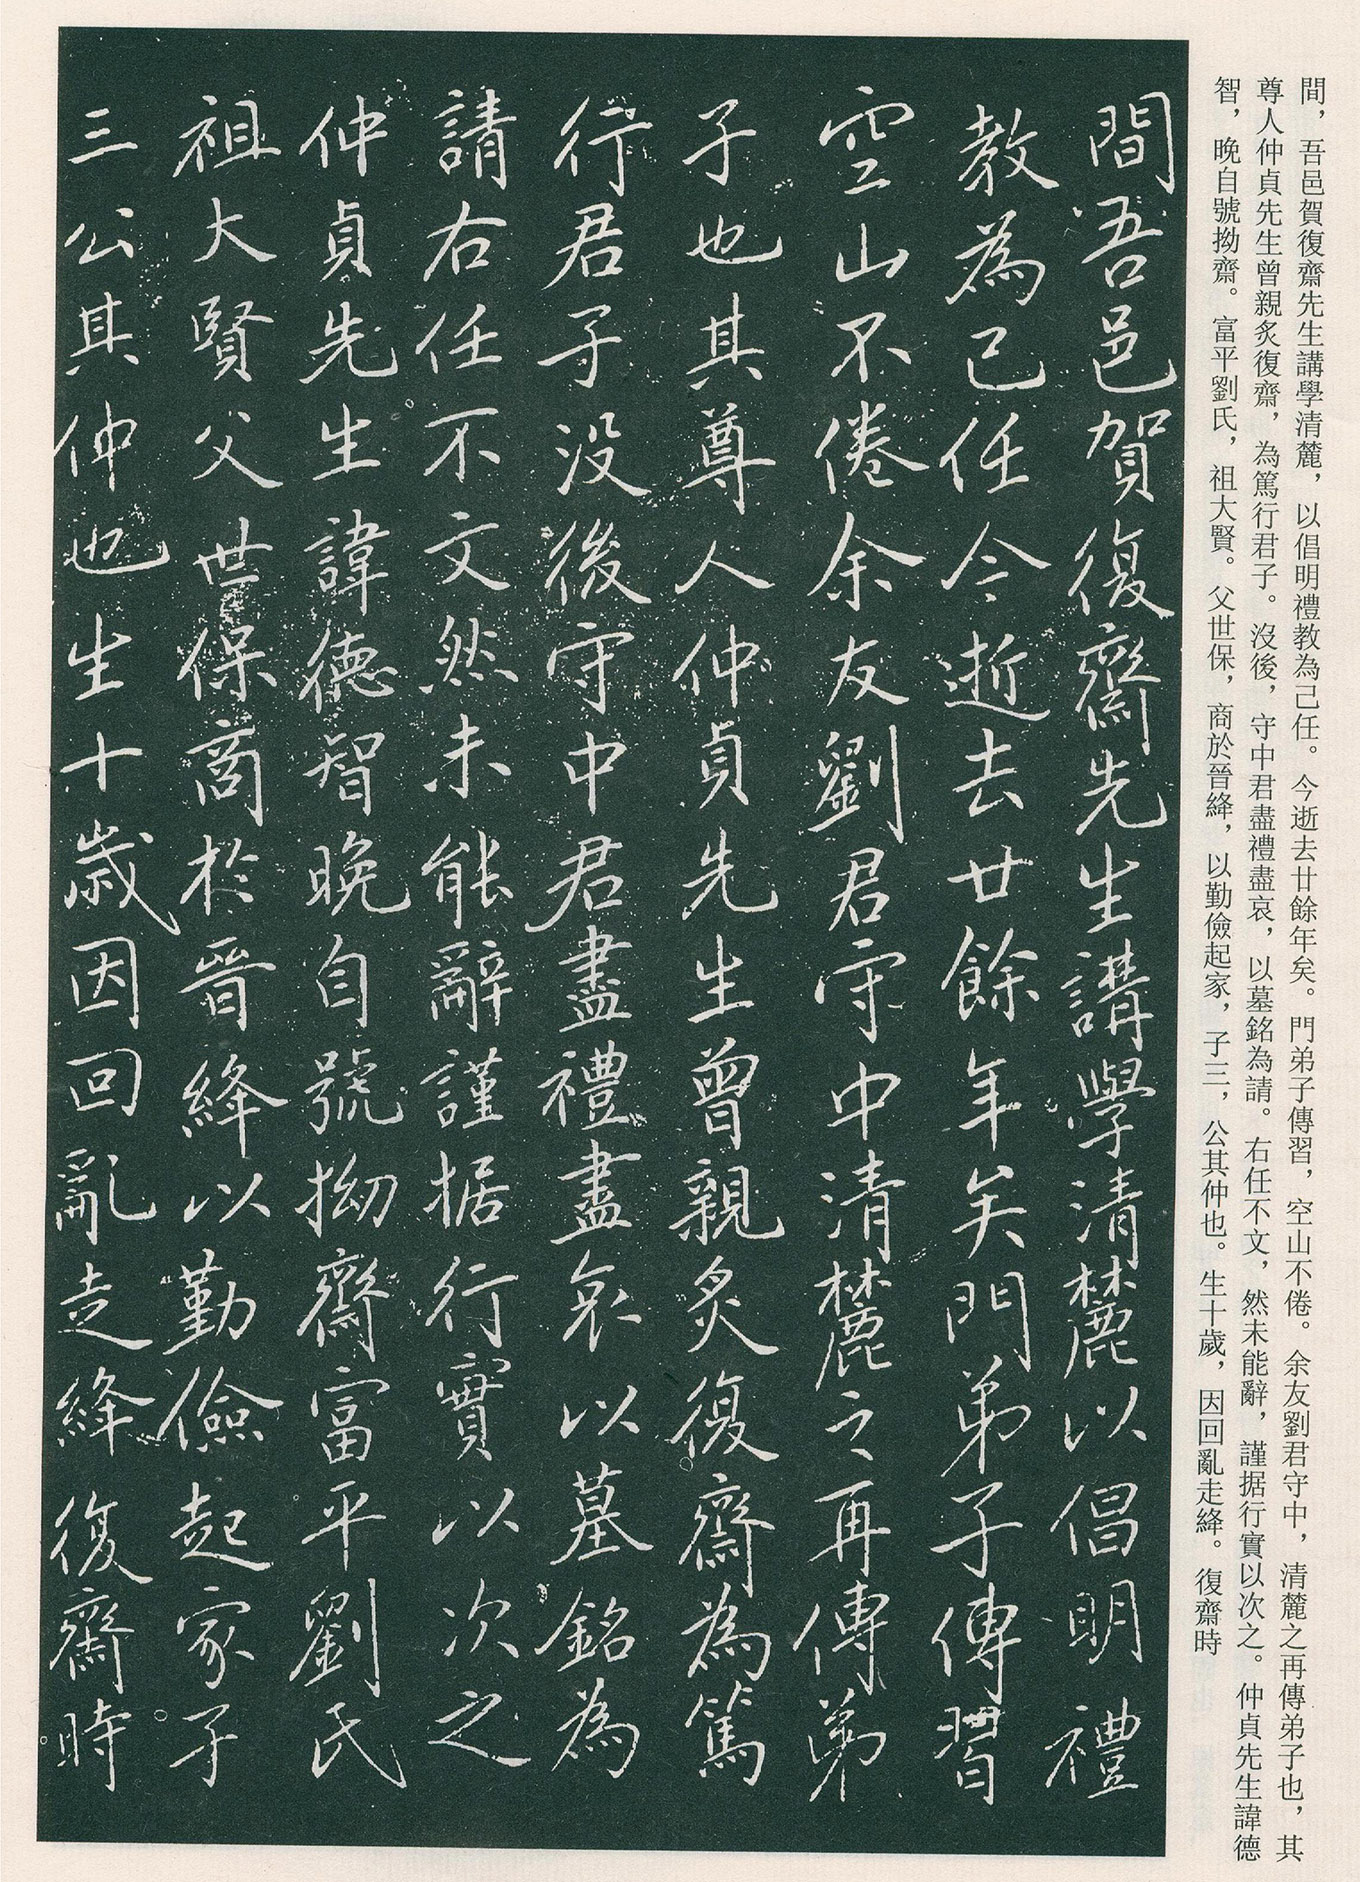 間，吾邑賀復齋先生講學清麓，以倡明禮教為己任。今逝去廿餘年矣。門弟子傳習，空山不倦。余友劉君守中，清麓之再傳弟子也，其
尊人仲貞先生曾親炙復齋，為篤行君子。沒後，守中君盡禮盡哀，以墓銘為請。右任不文，然未能辭，謹据行實以次之。仲貞先生諱德
智，晚自號拗齋。富平劉氏，祖大賢。父世保，商於晉絳，以勤儉起家，子三，公其仲也。生十歲，因回亂走絳。復齋時
間吾邑賀復齋先生講學清麓以倡明禮
教為己任今逝去廿餘年矣門弟子傳習
空山不倦余友劉君守中清麓之再傳弟
子也其尊人仲貞先生曾親炙復齋為篤
行君子没後守中君盡禮盡哀以墓銘為
請右任不文然未能辭謹据行實以次之
仲貞先生諱德智晚自號拗齋富平劉氏
祖大賢父世保商於晉絳以勤儉起家子
三公其仲也生十歲因回亂走絳復齋時